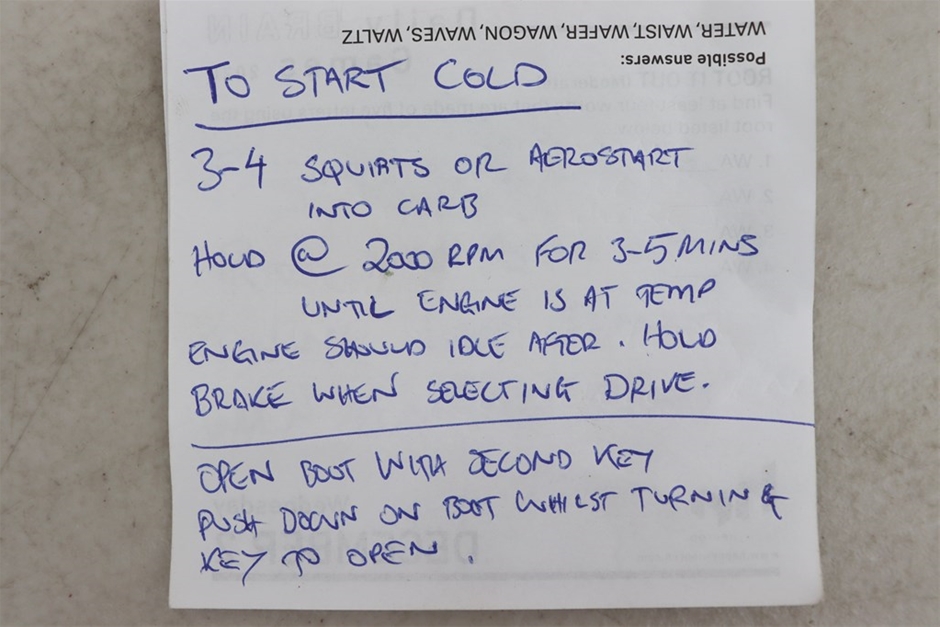 Possible answers:
WATER, WAIST, WAFER, WAGON, WAVES, WALTZ
TO START COLD
3-4 SQUIRTS OF AEROSTART
INTO CARB
HOLD @ 2000 RPM FOR 3-5 MINS
UNTIL ENGINE IS AT TEMP
ENGINE SHOULD IDLE AFTER. HOLD
BRAKE WHEN SELECTING DRIVE.
OPEN BOOT WITH SECOND KEY
PUSH DOWN ON BOOT WHILST TURNING
KEY TO OPEN.